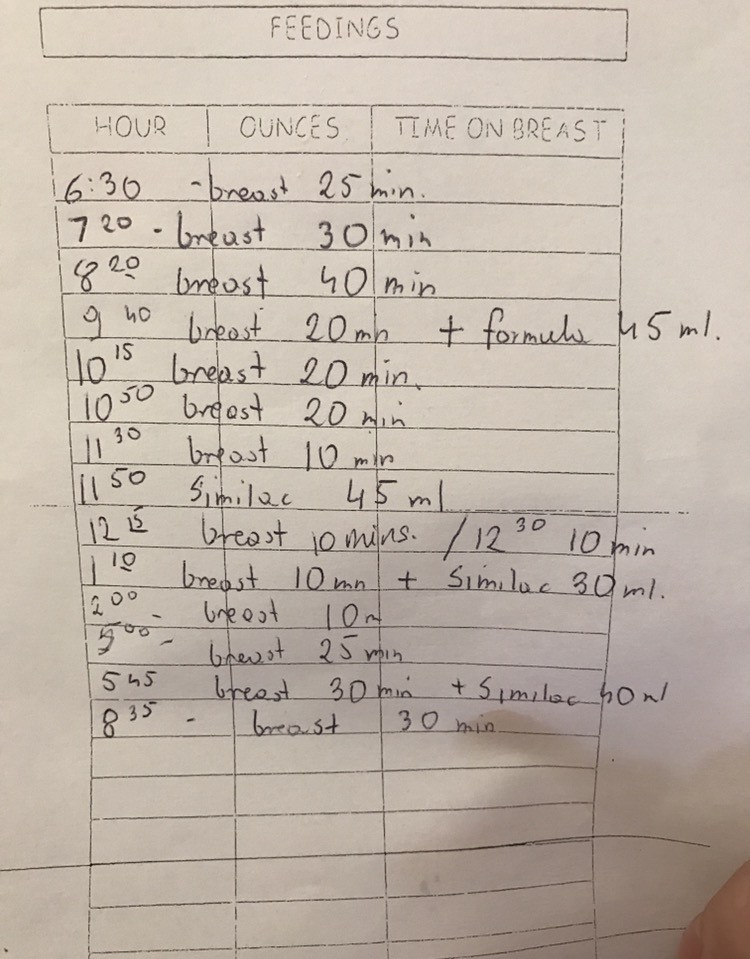 FEEDINGS
HOUR OUNCES TIME ON BREAST
6:30 - breast 25 min.
7 20 - breast 30 min
8 20 breast 40 min
9 40 breast 20 mn + formula 45 ml.
10 15 breast 20 min.
10 50 breast 20 min
11 30 breast 10 min
11 50 Similac 45 ml
12 15 breast 10 mins. / 12 30 10 min
1 10 breast 10 mn + Similac 30 ml.
2 00 - breast 10
5 00 - breast 25 min
5 45 breast 30 min + Similac 40 ml
8 35 - breast 30 min